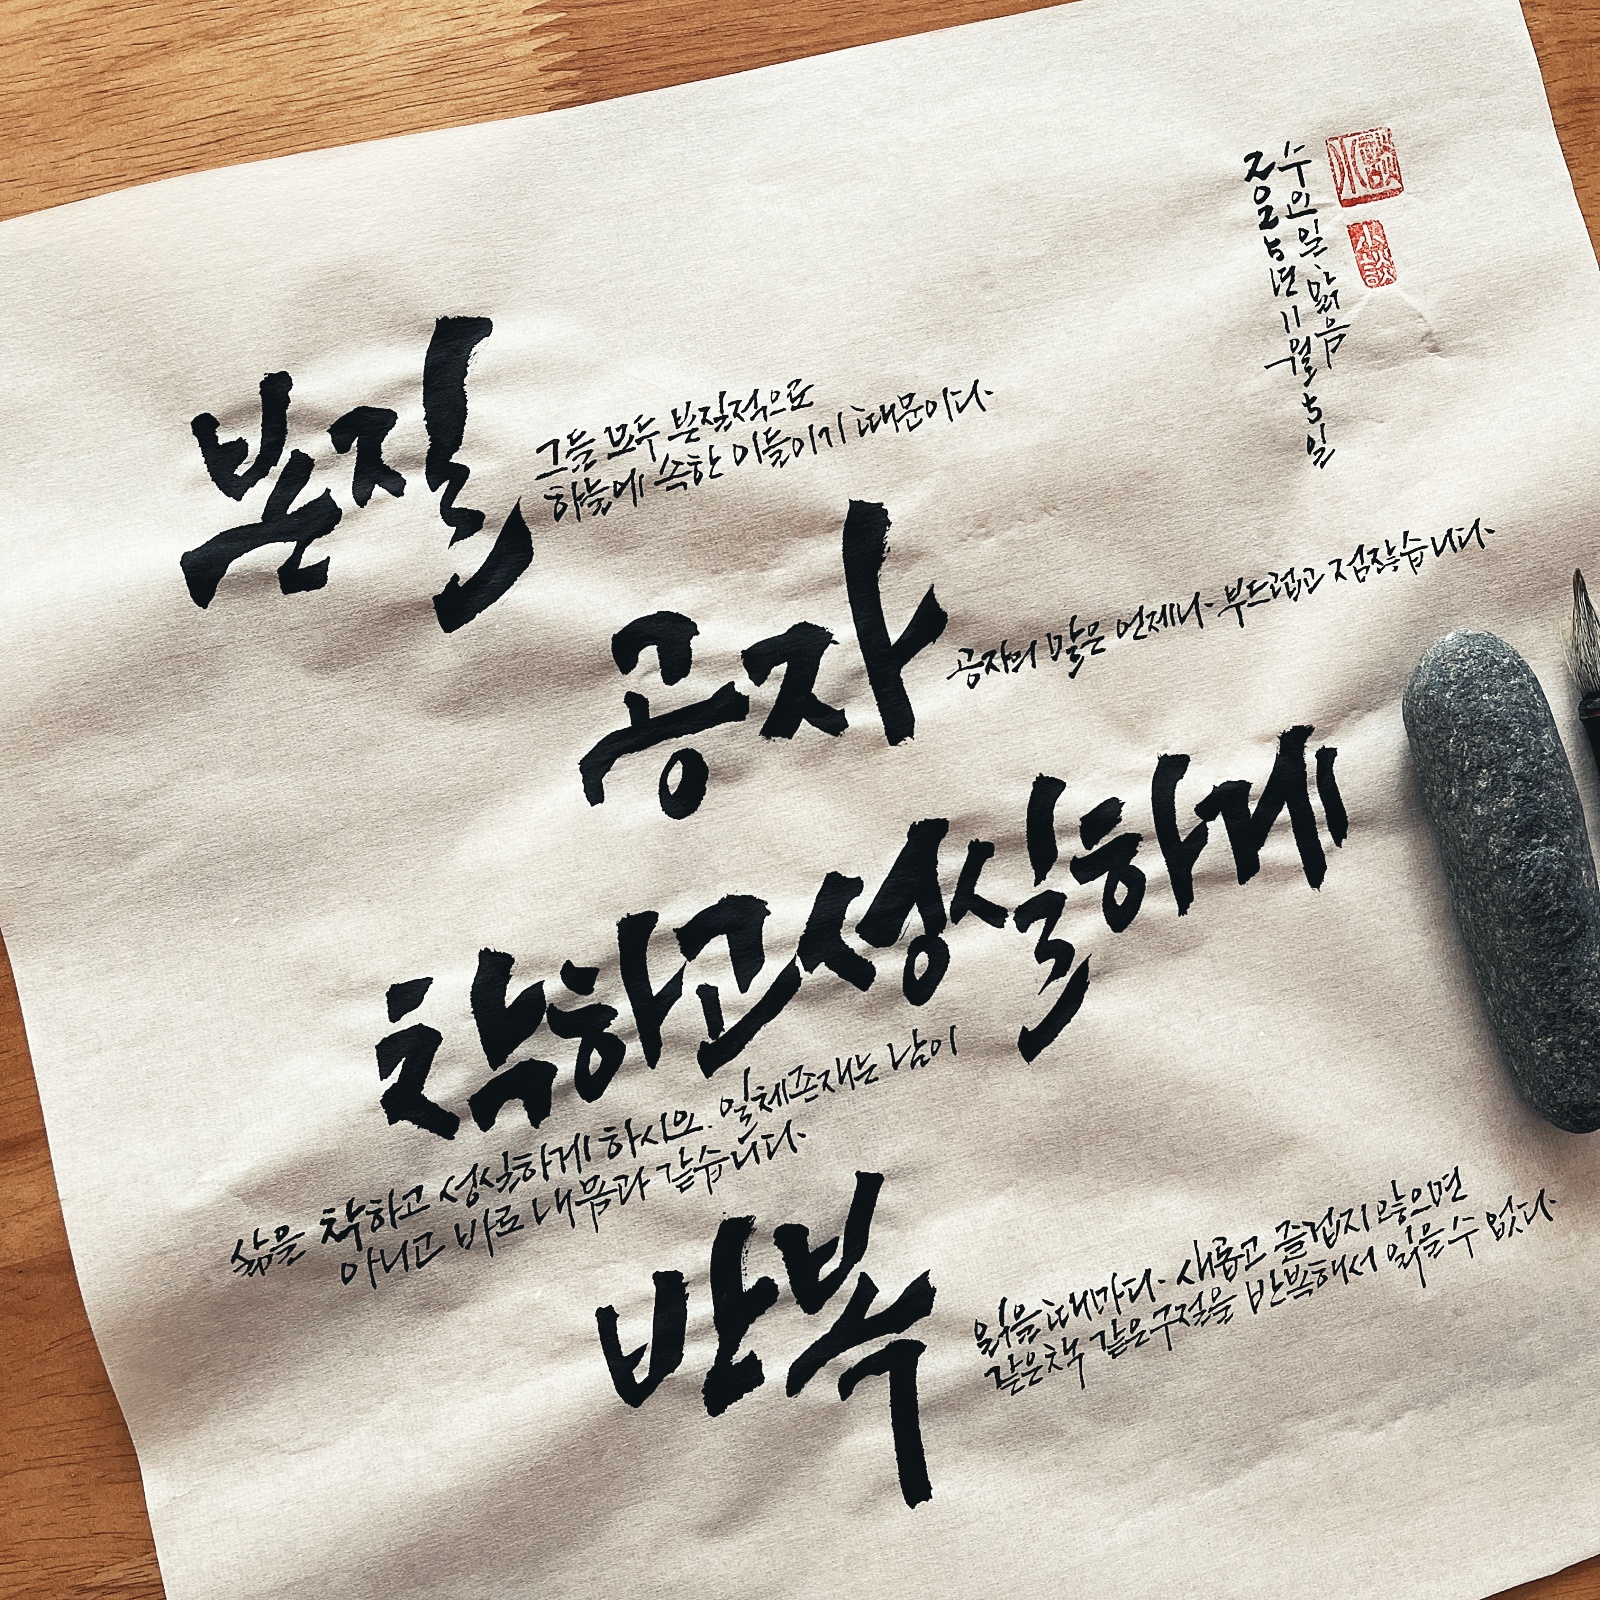 2025년11월5일
수요일 맑음
小談
小談
본질
그들 모두 본질적으로
하늘에 속한 이들이기 때문이다.
공자
공자의 말은 언제나 부드럽고 점잖습니다.
착하고성실하게
삶을 착하고 성실하게 하시오. 일체존재는 남이
아니고 바로 내몸과 같습니다.
반복
읽을때마다 새롭고 즐겁지 않으면
같은책 같은구절을 반복해서 읽을수 없다.